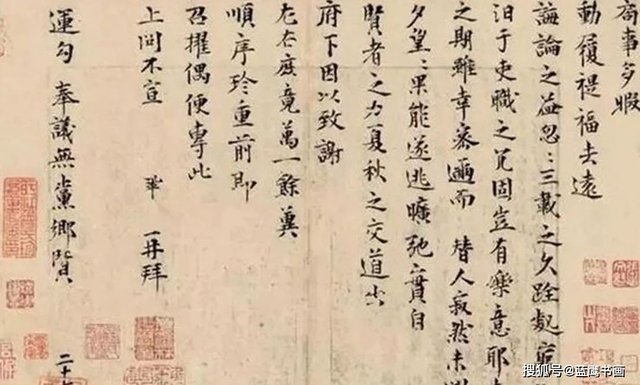 局事多暇
動履禔福去遠
誨論之益忽〻三載之久跧處窮
汨于吏職之冗固豈有樂意耶去
之期雖幸密邇而替人寂然未
夕望〻果能遂逃曠弛實自
賢者之力夏秋之交道出
府下因以致謝
左右庶竟萬一餘冀
順序珍重前即
召擢偶便專此
上問不宣 鞏 再拜
運勾奉議無黨鄉賢 二十
搜狐号@蓝鹰书画